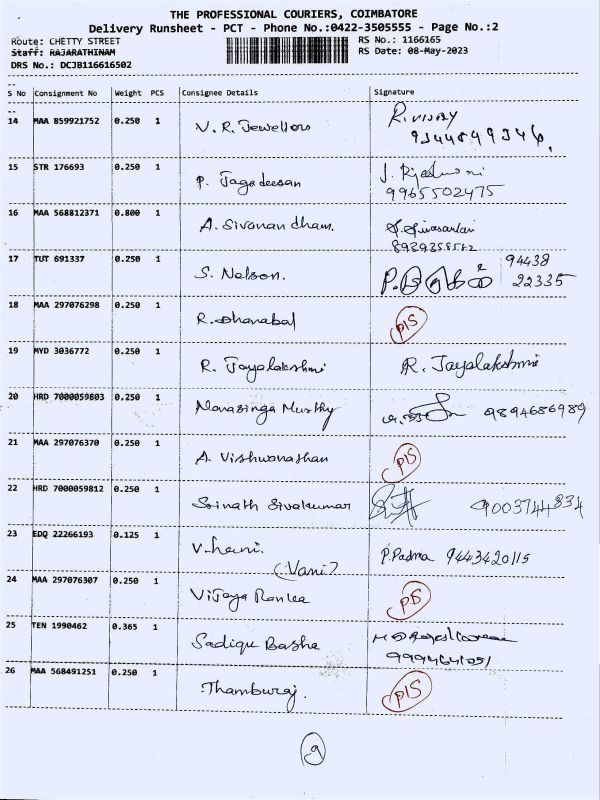 THE PROFESSIONAL COURIERS, COIMBATORE
Delivery Runsheet - PCT - Phone No.:0422-3505555 - Page No.:2
Route: CHETTY STREET RS No.: 1166165
Staff: RAJARATHINAM RS Date: 08-May-2023
DRS No.: DCJB116616502
S No Consignment No Weight PCS Consignee Details Signature
14 MAA 859921752 0.250 1 V.R. Jewellors R.VIJAY
9344849346.
15 STR 176693 0.250 1 P. Jagadeesan J.
9965502475
16 MAA 568812371 0.800 1 A. Sivanandham.
17 TUT 691337 0.250 1 S. Nelson. 94438
22335
18 MAA 297076298 0.250 1 R. Dhanabal P/S
19 MYD 3036772 0.250 1 R. Jayalakshmi R. Jayalakshmi
20 HRD 7000059803 0.250 1 Narasinga Murthy 9894686989
21 MAA 297076370 0.250 1 A. Vishwanathan P/S
22 HRD 7000059812 0.250 1 Srinath Sivakumar 9003744834
23 EDQ 22266193 0.125 1 V.hani. P.Padma 9443420115
(Vani)
24 MAA 297076307 0.250 1 Vijaya P/S
25 TEN 1990462 0.365 1 Sadiqu Basha
26 MAA 568491251 0.250 1 Thamburaj. P/S
9